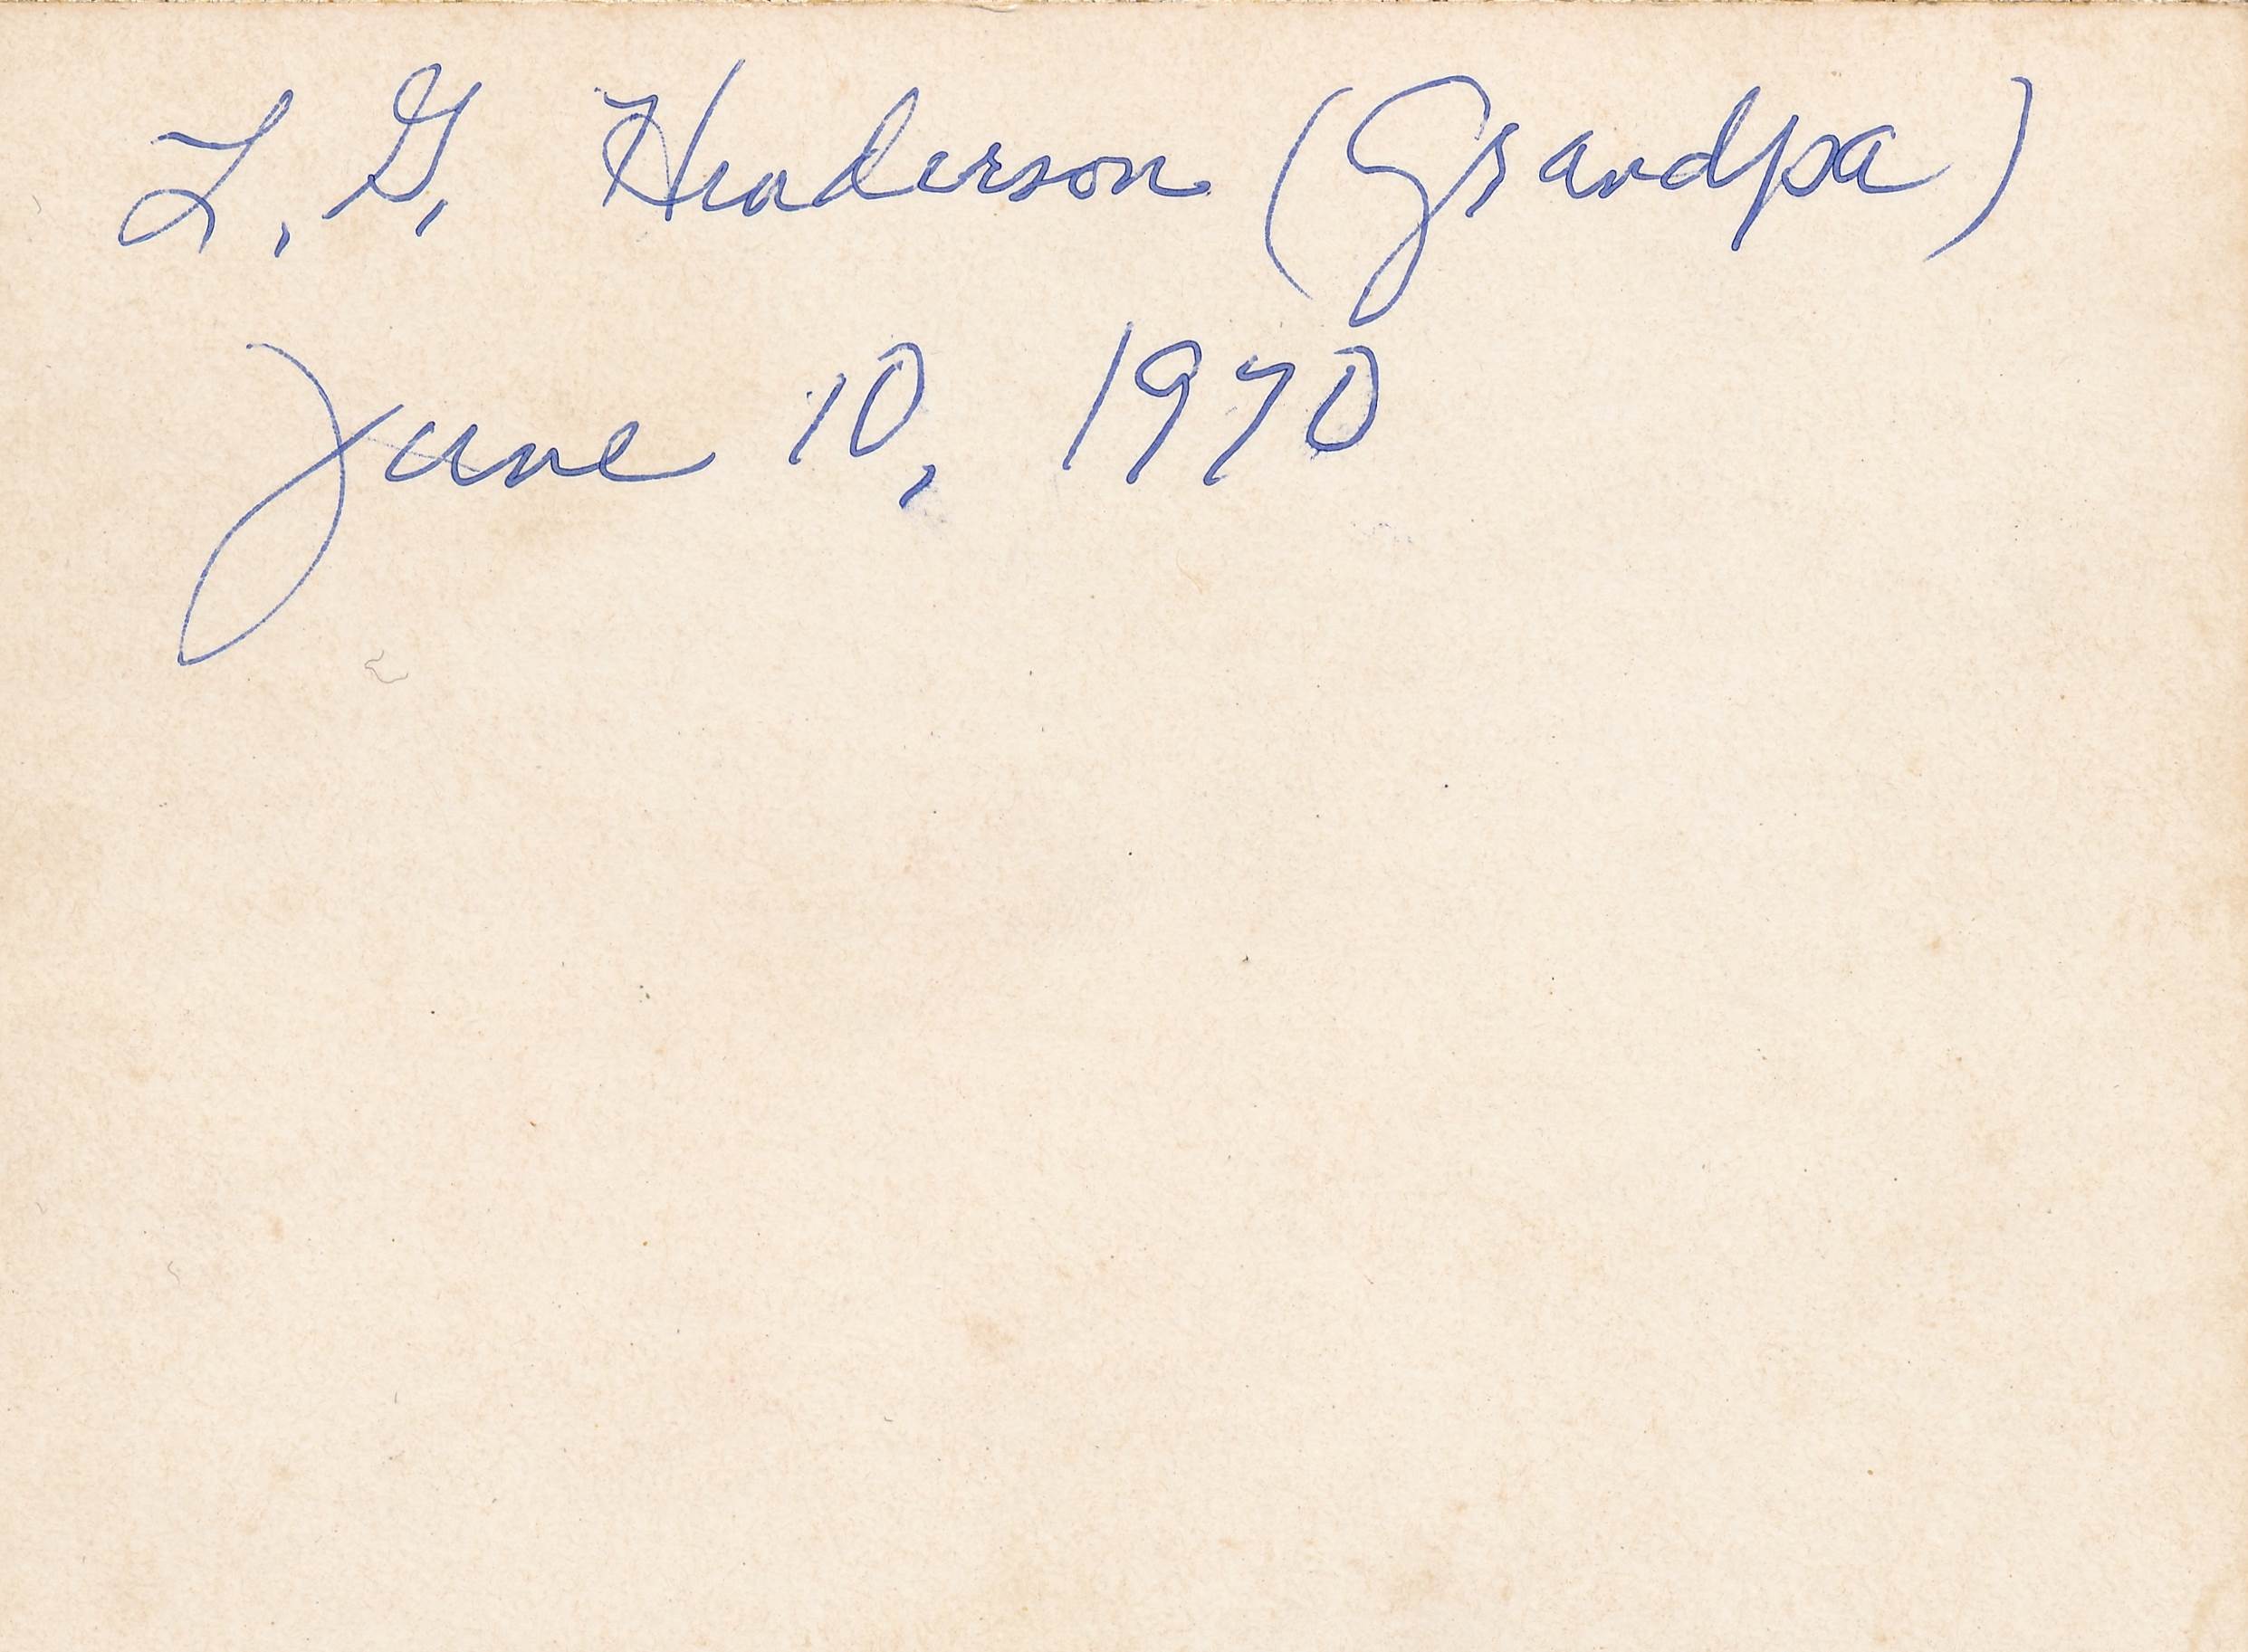 L. G. Henderson (Grandpa)
June 10, 1970